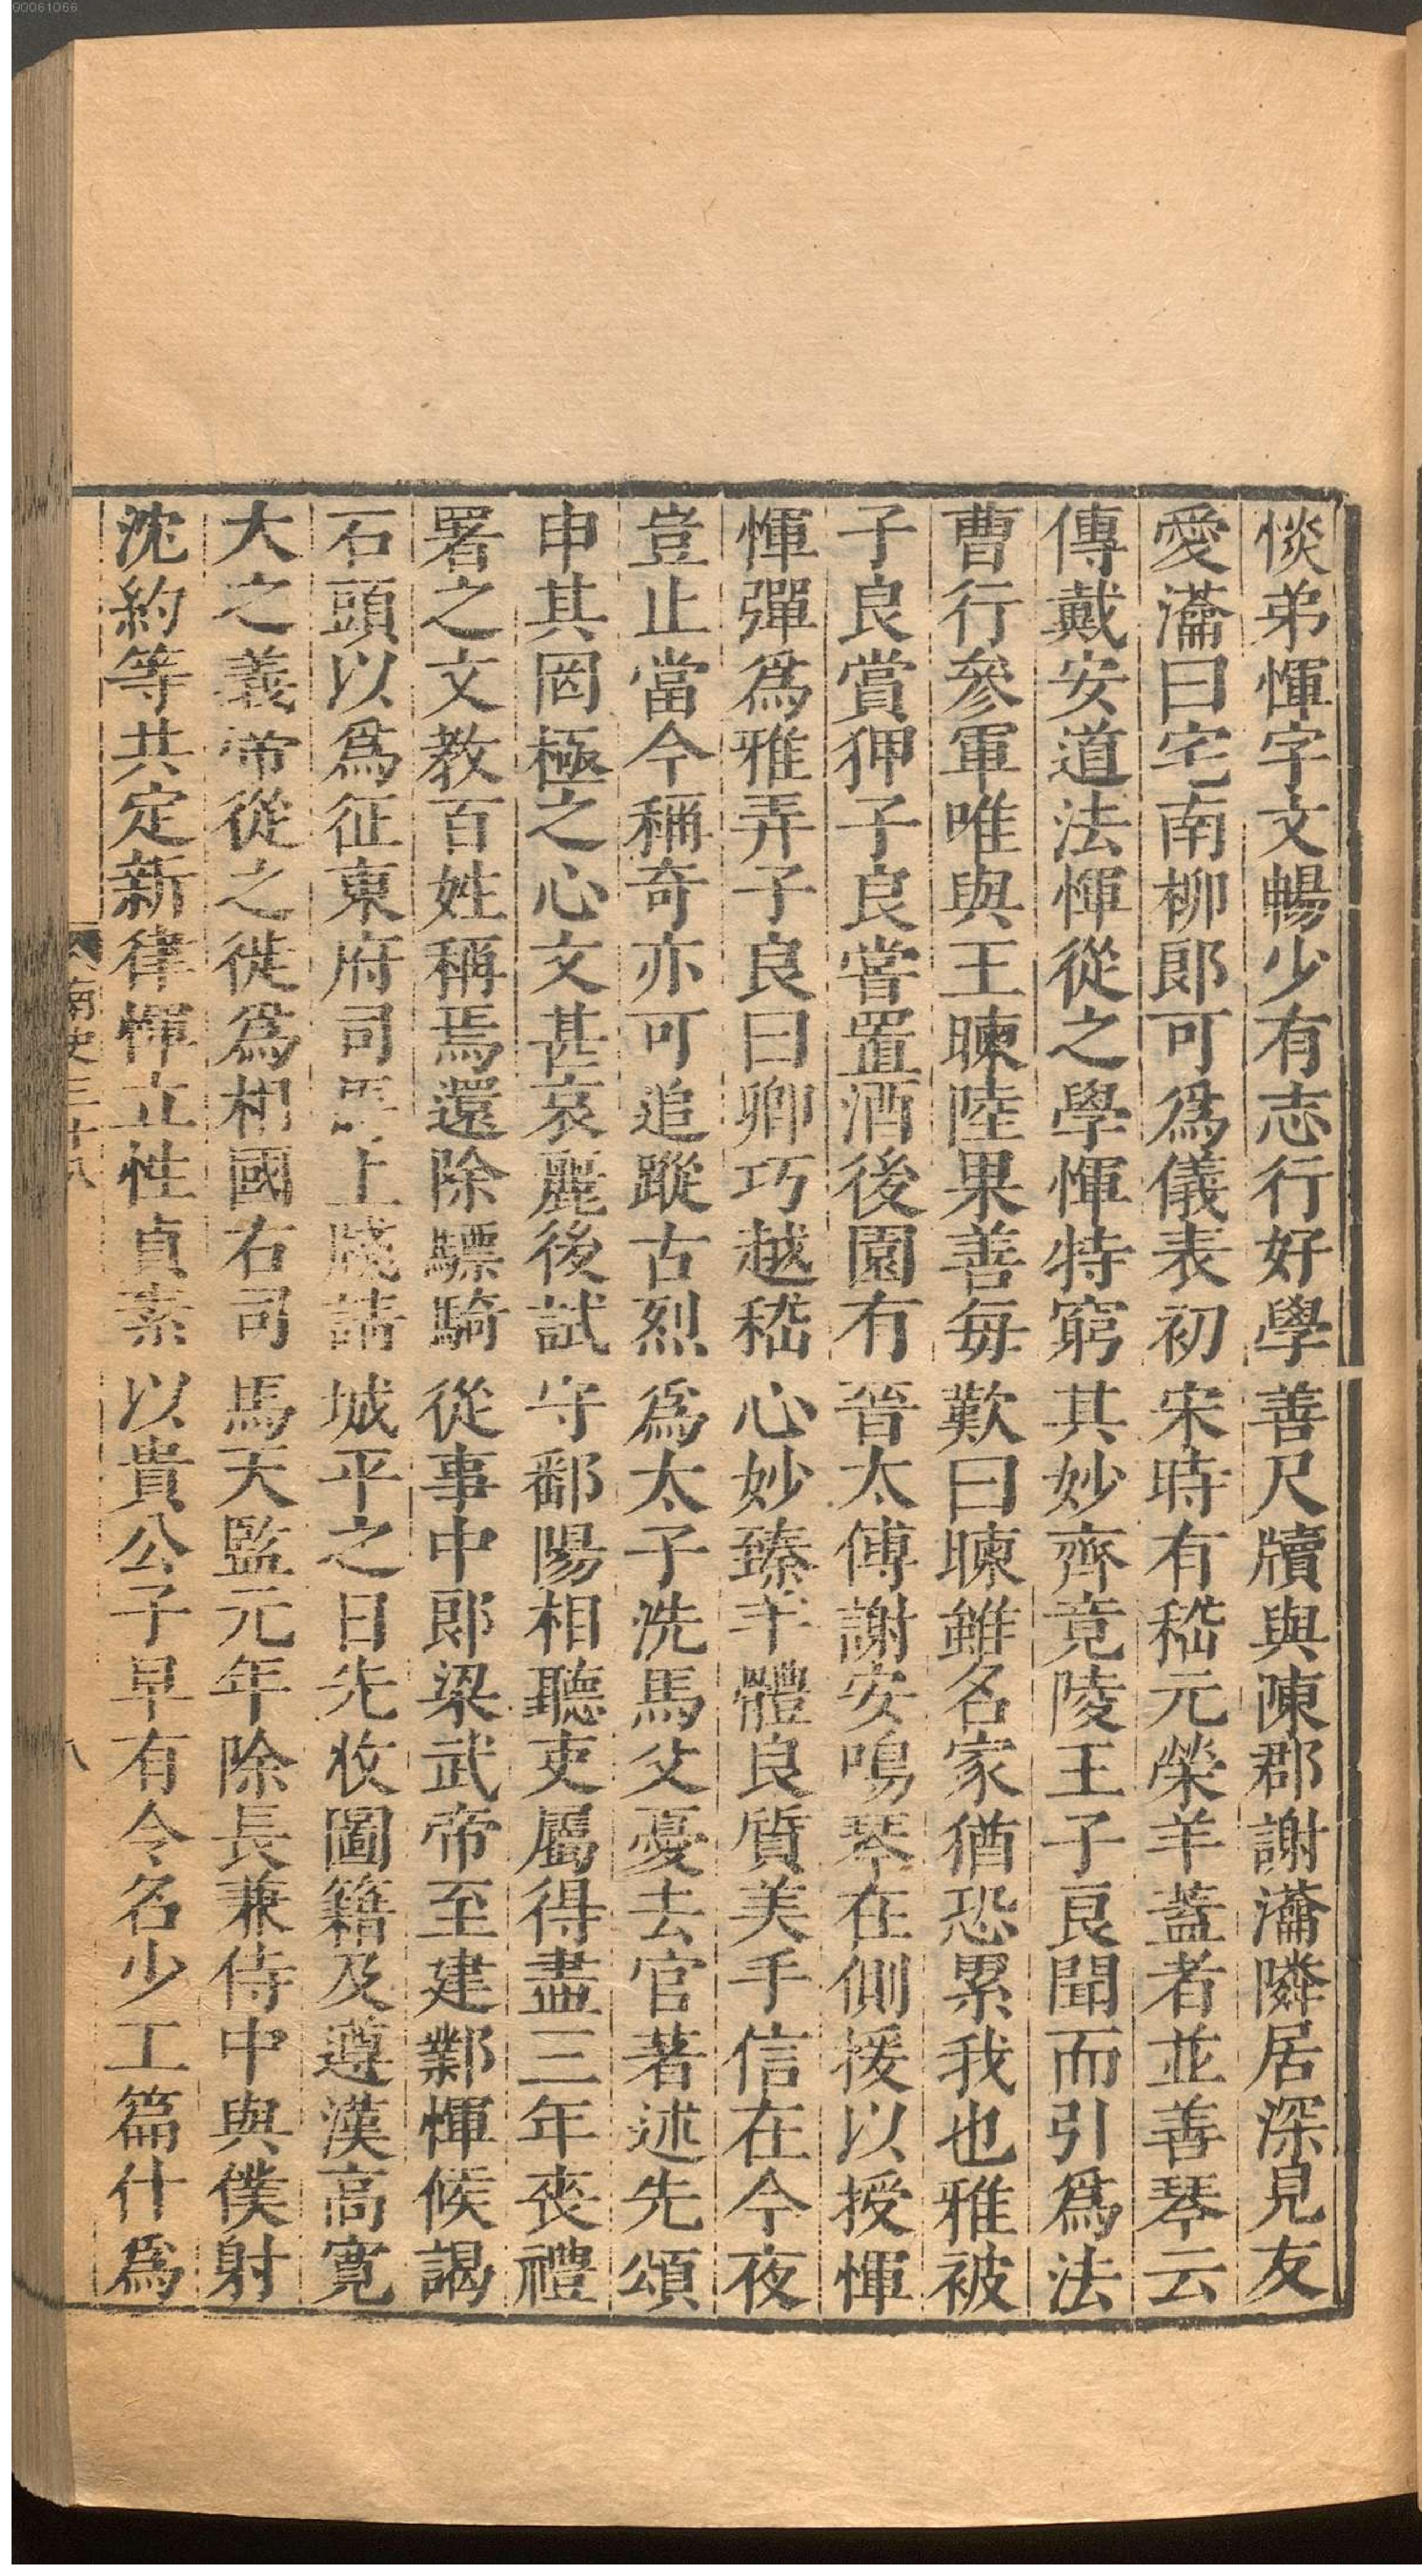 00061066
惔弟惲字文暢少有志行好學善尺牘與陳郡謝瀹隣居深見友
愛瀹曰宅南柳郞可爲儀表初宋時有嵇元榮羊蓋者並善琴云
傳戴安道法惲從之學惲特窮其妙齊竟陵王子良聞而引爲法
曹行參軍唯與王暕陸果善每歎曰暕雖名家猶恐累我也雅被
子良賞狎子良嘗置酒後園有晉太傅謝安鳴琴在側援以授惲
惲彈爲雅弄子良曰卿巧越嵇心妙臻羊體良質美手信在今夜
豈止當今稱奇亦可追蹤古烈爲太子洗馬父憂去官著述先頌
申其罔極之心文甚哀麗後試守鄱陽相聽吏屬得盡三年喪禮
署之文教百姓稱焉還除驃騎從事中郞梁武帝至建鄴惲候謁
石頭以爲征東府司馬上牋請城平之日先收圖籍及遵漢高寬
大之義帝從之徙爲相國右司馬天監元年除長兼侍中與僕射
沈約等共定新律惲立性貞素以貴公子早有令名少工篇什爲
南史三十八
八